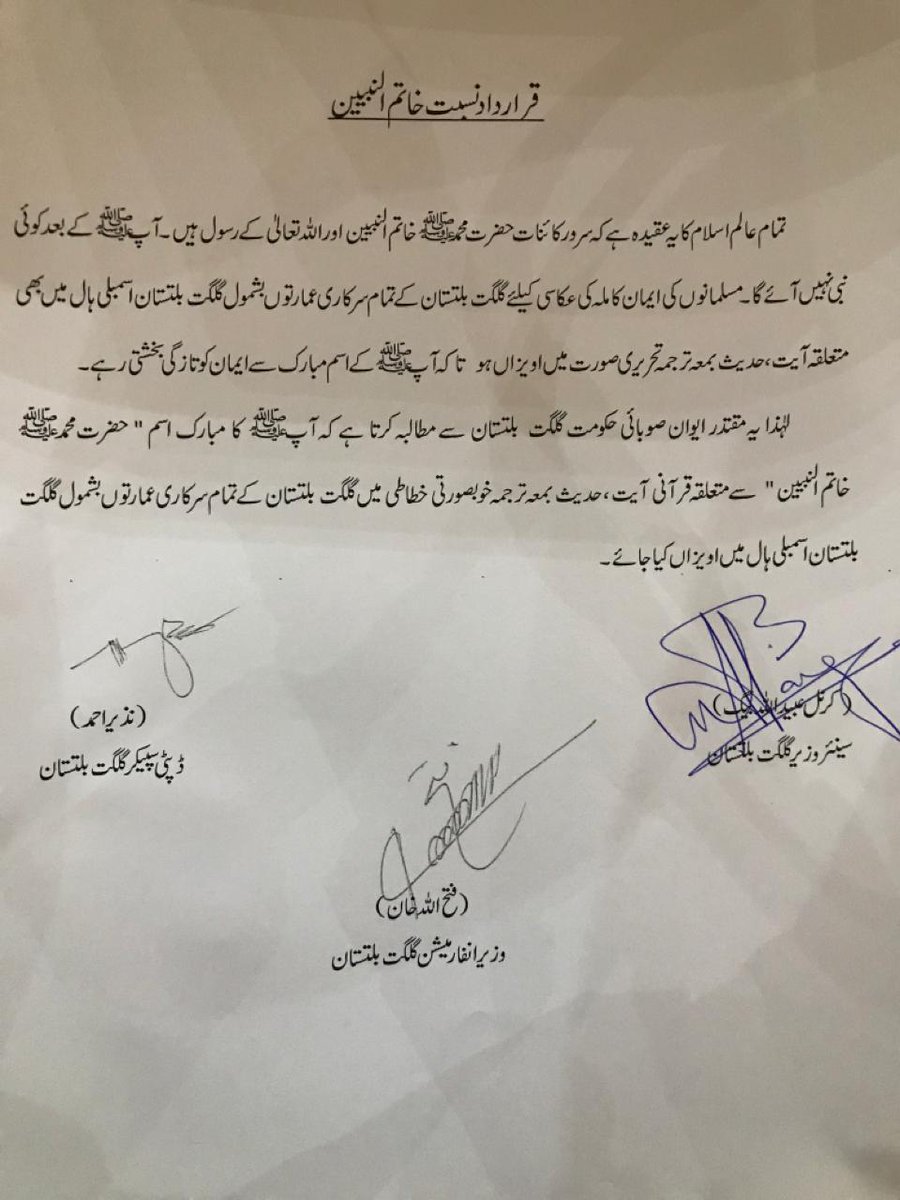 قرارداد نسبت خاتم النبیین
تمام عالم اسلام کا یہ عقیدہ ہے کہ سرور کائنات حضرت محمد ﷺ خاتم النبیین اور اللہ تعالیٰ کے رسول ہیں۔ آپ ﷺ کے بعد کوئی
نبی نہیں آئے گا۔ مسلمانوں کی ایمان کاملہ کی عکاسی کیلئے گلگت بلتستان کے تمام سرکاری عمارتوں بشمول گلگت بلتستان اسمبلی ہال میں بھی
متعلقہ آیت، حدیث بمعہ ترجمہ تحریری صورت میں اویزاں ہو تا کہ آپ ﷺ کے اسم مبارک سے ایمان کو تازگی بخشتی رہے۔
لہٰذا یہ مقتدر ایوان صوبائی حکومت گلگت بلتستان سے مطالبہ کرتا ہے کہ آپ ﷺ کا مبارک اسم " حضرت محمد ﷺ
خاتم النبیین " سے متعلقہ قرآنی آیت، حدیث بمعہ ترجمہ خوبصورتی خطاطی میں گلگت بلتستان کے تمام سرکاری عمارتوں بشمول گلگت
بلتستان اسمبلی ہال میں اویزاں کیا جائے۔
(کرنل عبید اللہ بیگ)
سینئر وزیر گلگت بلتستان
(نذیر احمد)
ڈپٹی سپیکر گلگت بلتستان
(فتح اللہ خان)
وزیر انفارمیشن گلگت بلتستان